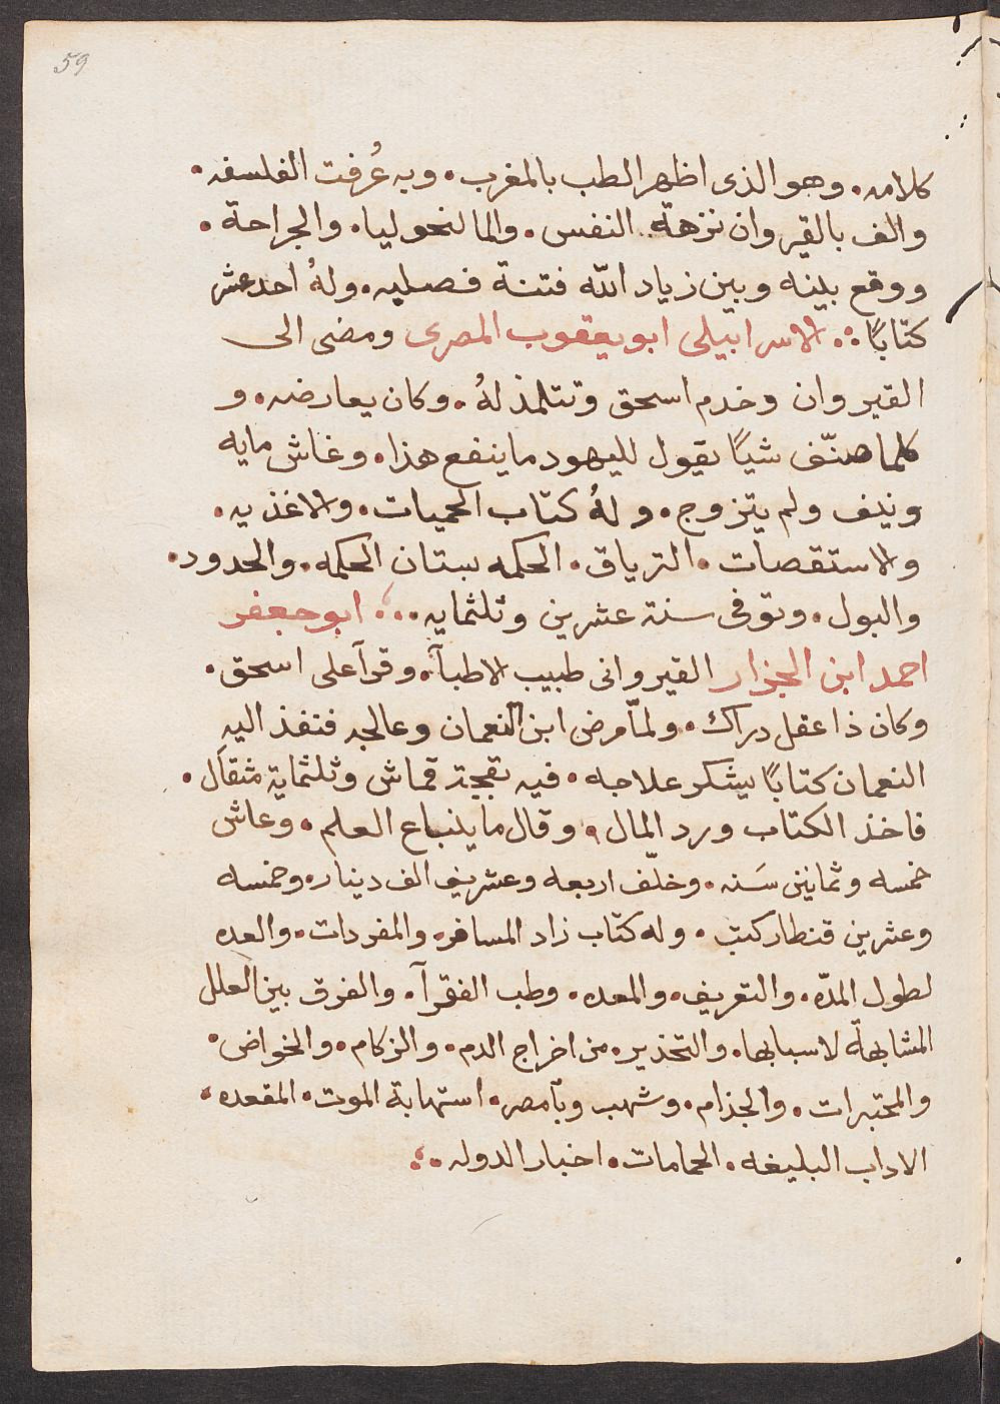 59
كلامه. وهو الذى اظهر الطب بالمغرب. وبه عُرفت الفلسفه.
والف بالقيروان نزهة النفس. والمالنحوليا. والجراحة.
ووقع بينه وبين زياد اللّه فتنة فصلبه. ولهُ احد عشر
كتابًا. الاسراييلى ابو يعقوب المصرى ومضى الى
القيروان وخدم اسحق وتتلمذ لهُ. وكان يعارضه. و
كلما صنّف شيًا يقول لليهود ما ينفع هذا. وغاش مايه
ونيف ولم يتزوج. ولهُ كتاب الحميات. والاغذيه.
والاستقصات. الترياق. الحكمه بستان الحكمه. والحدود.
والبول. وتوفى سنة عشرين وثلثمايه. ابو جعفر
احمد ابن الجزار القيروانى طبيب الاطبآ. وقرآ على اسحق.
وكان ذا عقل دراك. ولمّا مرض ابن النعمان وعالجه فنفذ اليه
النعمان كتابًا يشكر علاجه. فيه بقجة قماش وثلثماية مثقال.
فاخذ الكتاب ورد المال. وقال ما ينباع العلم. وعاش
خمسه وثمانين سَنه. وخلّف اربعه وعشرين الف دينار. وخمسه
وعشرين قنطار كتب. وله كتاب زاد المسافر. والمفردات. والعده
لطول المدّه. والتعريف. والمعده. وطب الفقرآ. والفرق بين العلل
المشابهة لاسبابها. والتحذير. من اخراج الدم. والزكام. والخواص.
والمختبرات. والجذام. وشهب وبآ مصر. استهابة الموت. المقعده.
الاداب البليغه. الحمامات. اخبار الدوله.